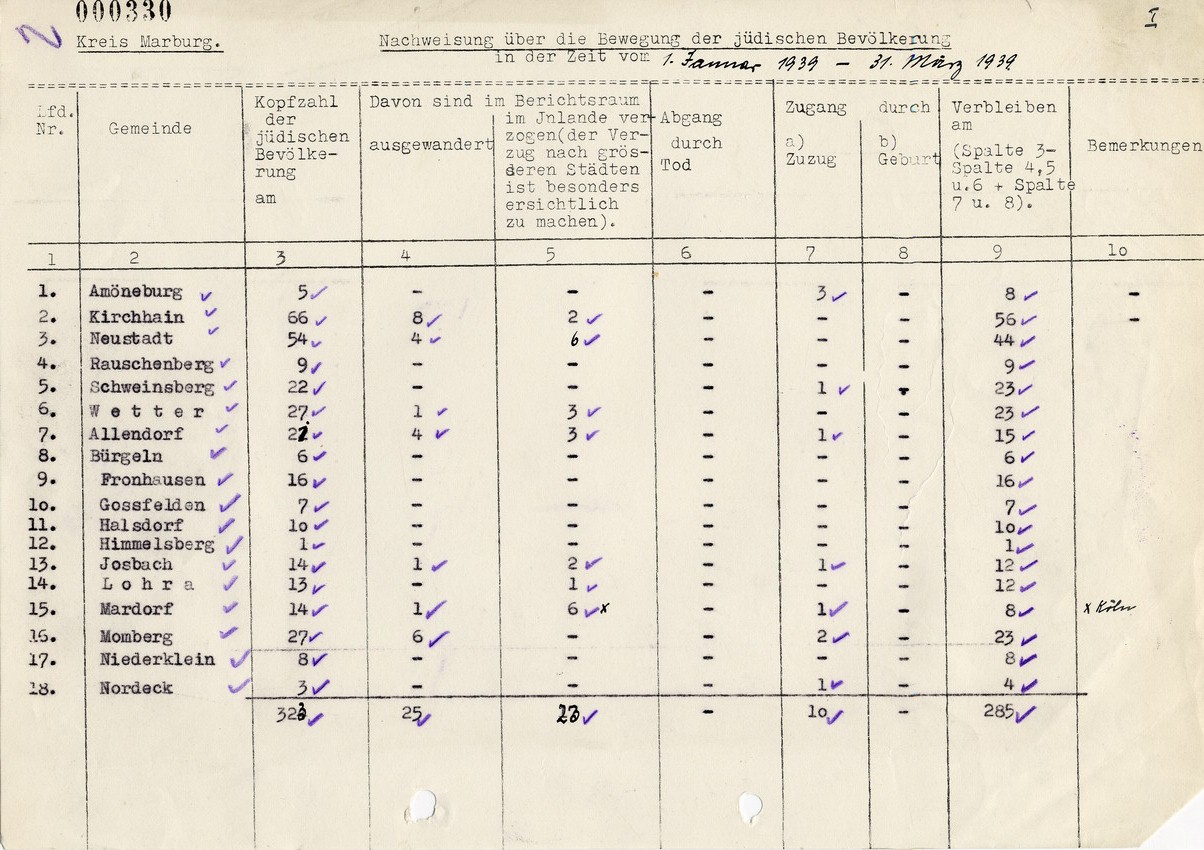 000330
I
2
Kreis Marburg.
Nachweisung über die Bewegung der jüdischen Bevölkerung
in der Zeit vom 1. Januar 1939 – 31. März 1939
Lfd. Nr.
Gemeinde
Kopfzahl
der
jüdischen
Bevölke-
rung
am
Davon sind im Berichtsraum
ausgewandert
im Jnlande ver
zogen(der Ver-
zug nach grös-
seren Städten
ist besonders
ersichtlich
zu machen).
Abgang
durch
Tod
Zugang durch
a)
Zuzug
b)
Geburt
Verbleiben
am
(Spalte 3-
Spalte 4,5
u.6 + Spalte
7 u. 8).
Bemerkungen
1 2 3 4 5 6 7 8 9 1o
1. Amöneburg ✓ 5✓ - - - 3✓ - 8✓ -
2. Kirchhain ✓ 66✓ 8✓ 2✓ - - - 56✓ -
3. Neustadt ✓ 54✓ 4✓ 6✓ - - - 44✓
4. Rauschenberg✓ 9✓ - - - - - 9✓
5. Schweinsberg✓ 22✓ - - - 1✓ - 23✓
6. W e t t e r ✓ 27✓ 1✓ 3✓ - - - 23✓
7. Allendorf ✓ 21✓ 4✓ 3✓ - 1✓ - 15✓
8. Bürgeln ✓ 6✓ - - - - - 6✓
9. Fronhausen ✓ 16✓ - - - - - 16✓
1o. Gossfelden ✓ 7✓ - - - - - 7✓
11. Halsdorf ✓ 1o✓ - - - - - 1o✓
12. Himmelsberg ✓ 1✓ - - - - - 1✓
13. Josbach ✓ 14✓ 1✓ 2✓ - 1✓ - 12✓
14. L o h r a ✓ 13✓ - 1✓ - - - 12✓
15. Mardorf ✓ 14✓ 1✓ 6✓x - 1✓ - 8✓ x Köln
16. Momberg ✓ 27✓ 6✓ - - 2✓ - 23✓
17. Niederklein ✓ 8✓ - - - - - 8✓
18. Nordeck ✓ 3✓ - - - 1✓ - 4✓
323✓ 25✓ 23✓ - 1o✓ - 285✓